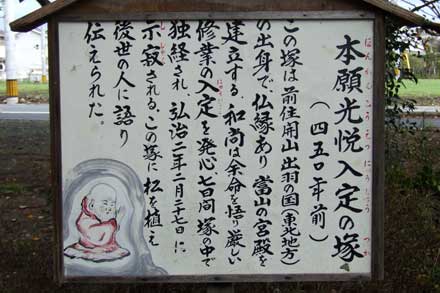 本願光悦入定の塚
ほんがんこうえつにゅうじょうつか
(四五〇年前)
この塚は前住開山出羽の国(東北地方)
の出身で、仏縁あり當山の宮殿を
建立する。和尚は余命を悟り厳しい
修業の入定を発心、七日間塚の中で
独経され、弘治二年二月二十七日に
示寂される、この塚に松を植え
じじゃく
後世の人に語り
伝えられた。